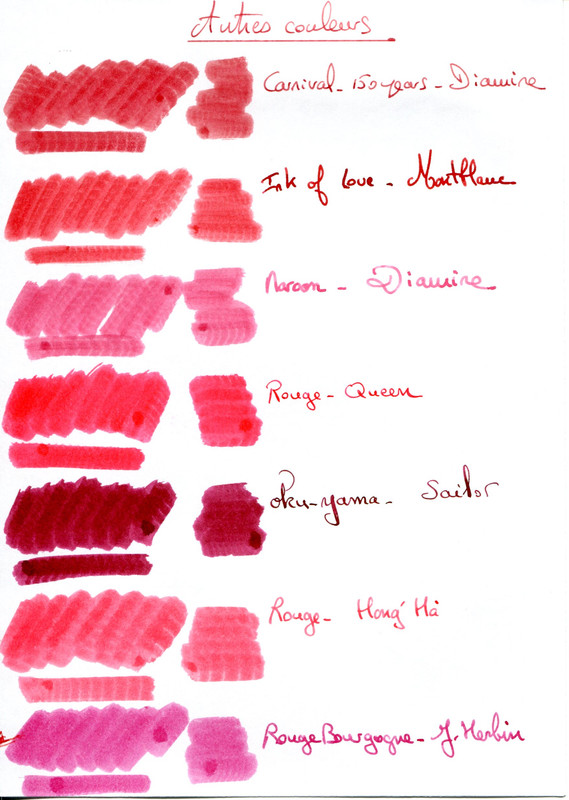 Autres couleurs
Carnival - 150 years - Diamine
Ink of love - Montblanc
Maroon - Diamine
Rouge - Queen
Oku-yama - Sailor
Rouge - Hong Hà
Rouge Bourgogne - J. Herbin